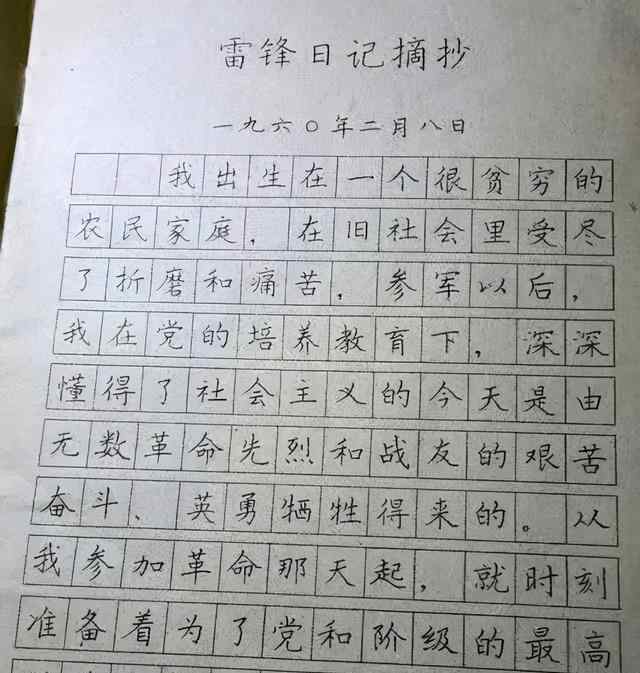 雷锋日记摘抄
一九六〇年二月八日
我出生在一个很贫穷的
农民家庭，在旧社会里受尽
了折磨和痛苦，参军以后，
我在党的培养教育下，深深
懂得了社会主义的今天是由
无数革命先烈和战友的艰苦
奋斗、英勇牺牲得来的。从
我参加革命那天起，就时刻
准备着为了党和阶级的最高